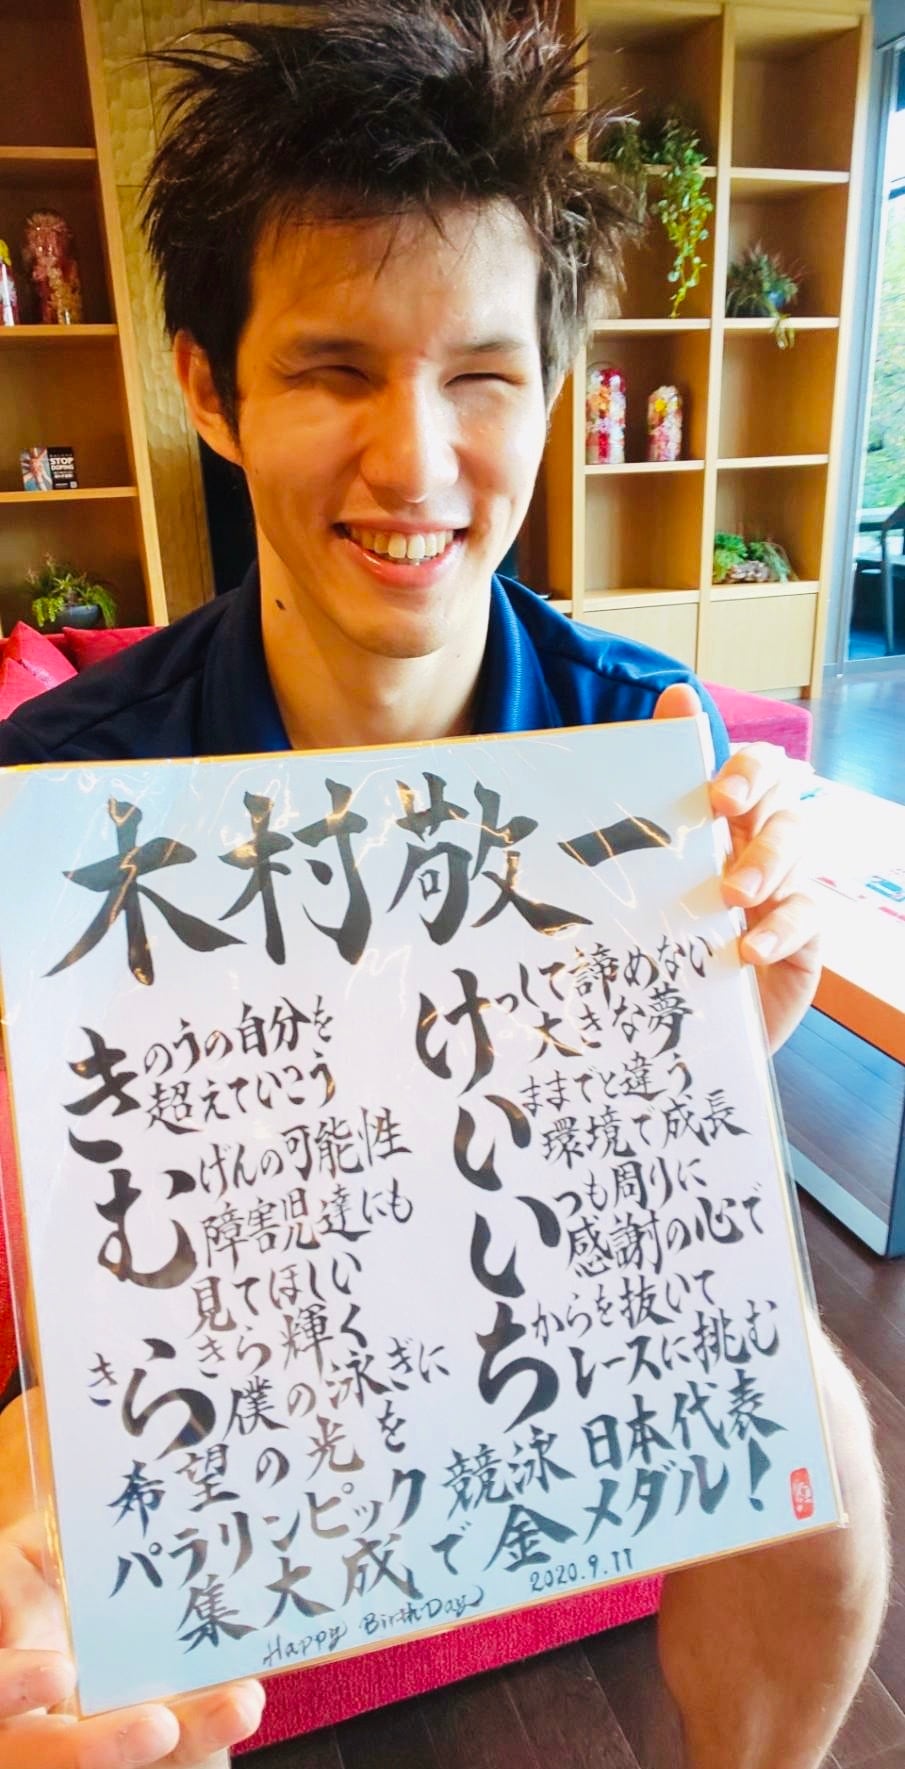 木村敬一
きのうの自分を
超えていこう
むげんの可能性
障害児達にも
見てほしい
きらきら輝く
僕の泳ぎに
希望の光を
けっして諦めない
大きな夢
いままでと違う
環境で成長
いつも周りに
感謝の心で
ちからを抜いて
レースに挑む
パラリンピック 競泳 日本代表
集大成で金メダル!
Happy BirthDay 2020.9.11
STOP
DOPING